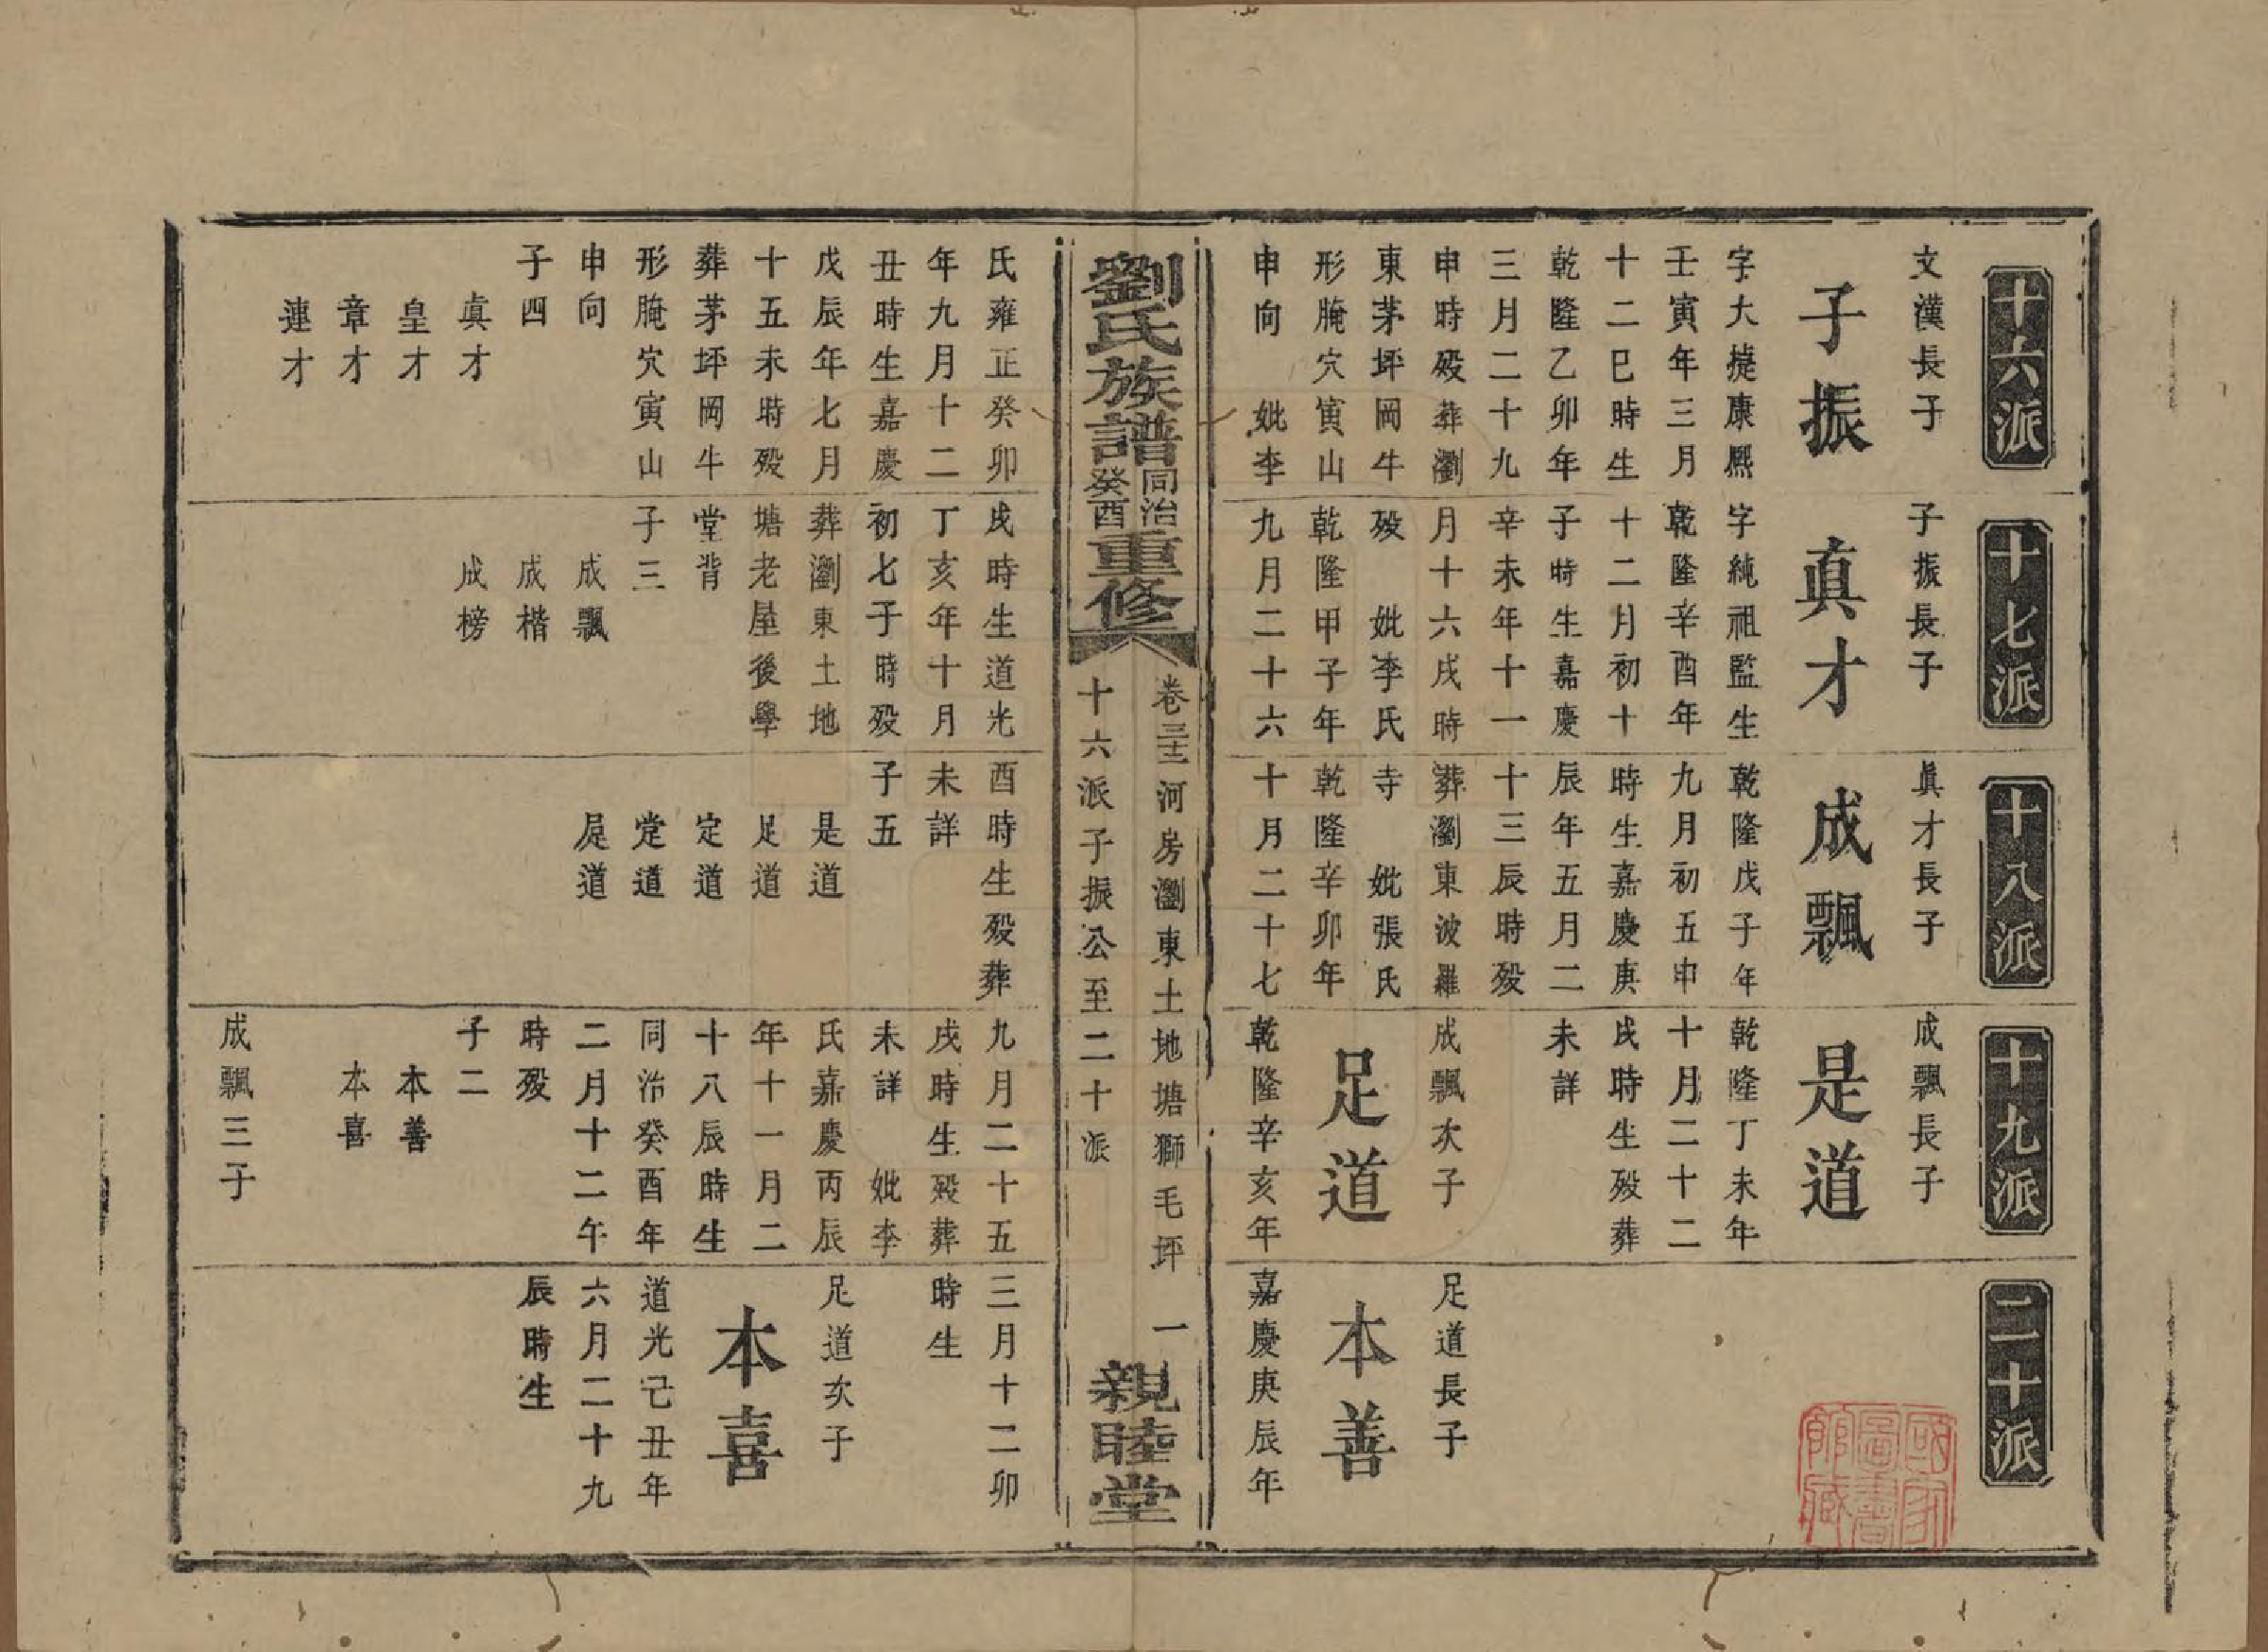 十六派
文漢長子
子振
字大㨗康熙
壬寅年三月
十二巳時生
乾隆乙卯年
三月二十九
申時歿葬瀏
東茅坪岡牛
形腌穴寅山
申向 妣李
氏雍正癸卯
年九月十二
丑時生嘉慶
戊辰年七月
十五未時歿
葬茅坪岡牛
形腌穴寅山
申向
子四
眞才
皇才
章才
連才
十七派
子振長子
眞才
字純祖監生
乾隆辛酉年
十二月初十
子時生嘉慶
辛未年十一
月十六戌時
歿 妣李氏
乾隆甲子年
九月二十六
戌時生道光
丁亥年十月
初七子時歿
葬瀏東土地
塘老屋後學
堂背
子三
成飄
成楷
成榜
十八派
眞才長子
成飄
乾隆戊子年
九月初五申
時生嘉慶庚
辰年五月二
十三辰時歿
葬瀏東波羅
寺 妣張氏
乾隆辛卯年
十月二十七
酉時生歿葬
未詳
子五
是道
足道
定道
定道
是道
十九派
成飄長子
是道
乾隆丁未年
十月二十二
戌時生歿葬
未詳
成飄次子
足道
乾隆辛亥年
九月二十五
戌時生歿葬
未詳 妣李
氏嘉慶丙辰
年十一月二
十八辰時生
同治癸酉年
二月十二午
時歿
子二
本善
本喜
成飄三子
二十派
足道長子
本善
嘉慶庚辰年
三月十二卯
時生
足道次子
本喜
道光己丑年
六月二十九
辰時生
劉氏族譜
同治癸酉
重修
卷三十二河房瀏東土地塘獅毛坪 一
十六派子振公至二十派
親睦堂
國家圖書館藏